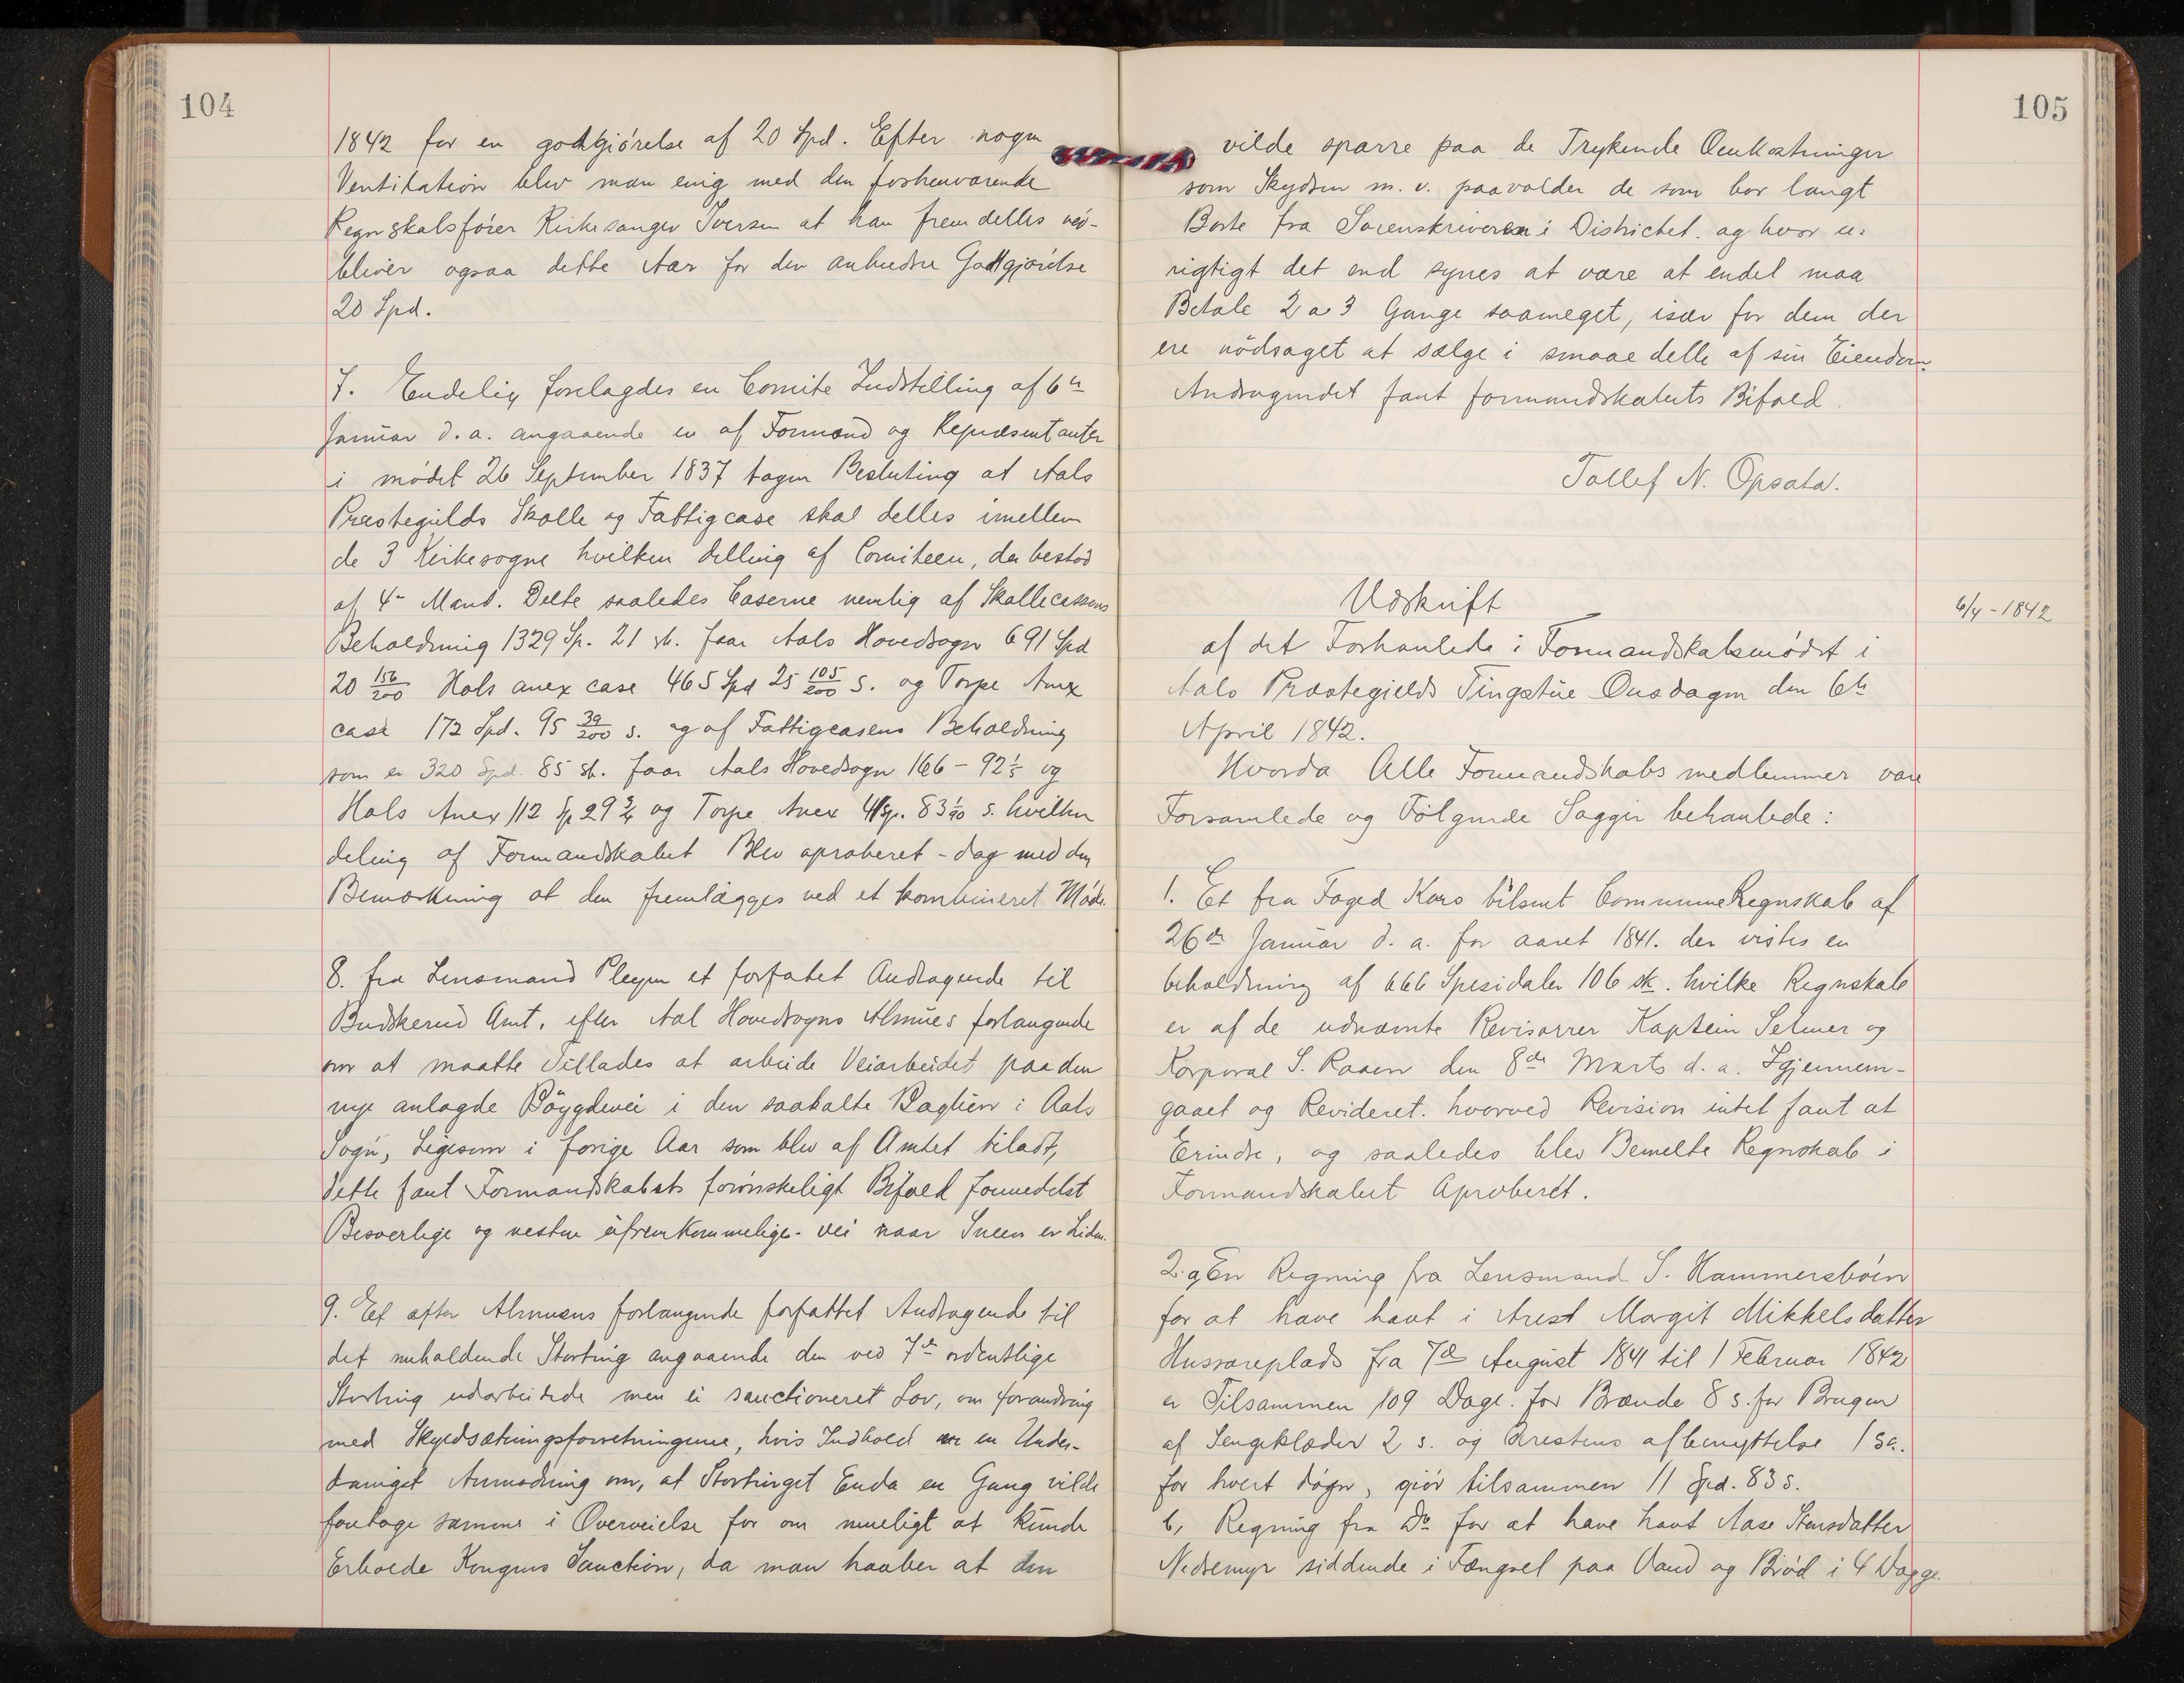 104
1842 for en godtgiörelse af 20 Spd. Efter nogen
Ventilation blev man enig med den forhenværende
Regnskalsförer Kirkesanger Iversen at han fremdelles ved-
bliver ogsaa dette Aar for den anbudne Godtgjörelse
20 Spd.
7. Endelig forelagdes en Comite Indstilling af 6te
Januar d.a. angaaende en af Formænd og Repræsentanter
i mödet 26 September 1837 tagen Beslutning at Aals
Præstegields Skolle og Fattigcase skal delles imellem
de 3 Kirkesogne hvilken delling af Comiteen, der bestod
af 4re Mand. Delte saaledes Caserne nemlig af Skollecassens
Beholdning 1329 Sp. 21 sk. faar Aals Hovedsogn 691 Spd
20 156/200 Hols anex case 465 Spd 25 105/200 s. og Torpe Anex
case 172 Spd. 95 39/200 s. og af Fattigcasens Beholdning
som er 320 Spd. 85 sk. faar Aals Hovedsogn 166 - 92 1/5 og
Hols Anex 112 Sp 29 3/4 og Torpe Anex 41 Sp. 83 1/90 s. hvilken
deling af Formandskabet Blev aproberet - dog med den
Bemærkning at den fremlægges ved et kombineret Möde.
8. fra Lensmand Pleym et forfatet Andragende til
Budskerud Amt, efter Aal Hovedsogns Almues forlangende
om at maatte Tillades at arbeide Veiarbeidet paa den
nye anlagde Böygdevei i den saakalte Baglien i Aals
Sogn, Ligesom i forige Aar som blev af Amtet tiladt,
dette fant Formandskabets forönskeligt Bifald formedelst
Besværlige og nesten ufremkommelige vei naar Sneen er Liden.
9. Et efter Almuens forlangende forfattet Andragende til
det nuholdende Storting angaaende den ved 7de ordentlige
Storting udarbeidede men ei sanctioneret Lov, om forandring
med Skyldsætningsforretningerne, hvis Indhold er en Under-
daniget Anmodning om, at Stortinget Enda en Gang vilde
foretage samme i Overveielse for om mueligt at kunde
Erholde Kongens Sanction, da man haaber at den
105
vilde sparre paa de Trykende Omkostninger
som Skydsen m.v. paavolder de som bor langt
Borte fra Sorenskriveren i Districtet. og hvor u-
rigtigt det end synes at være at endel maa
Betale 2 a 3 Gange saameget, især for dem der
ere nödsaget at sælge i smaae delle af sin Eiendom.
Andragendet fant formandskabets Bifald.
Tollef N. Opsata.
Udskrift
6/4-1842
af det Forhanlede i Formandskabsmödet i
Aals Præstegields Tingstue Onsdagen den 6te
April 1842.
Hvorda Alle Formandskabs medlemmer vare
Forsamlede og Fölgende Sagger behanlede:
1. Et fra Foged Kors tilsent CommuneRegnskab af
26de Januar d.a. for aaret 1841. der vistes en
beholdning af 666 Spesidaler 106 sk. hvilke Regnskab
er af de udnæmte Revisorrer Kaptein Selmer og
Korporal S. Raaen den 8de Marts d.a. Igjennem-
gaaet og Revideret. hvorved Revision intet fant at
Erindre, og saaledes blev Bemelte Regnskab i
Formandskabet Aproberet.
2. a, En Regning fra Lensmand S. Hammersböen
for at have havt i Arest Margit Mikkelsdatter
Hussareplads fra 7de August 1841 til 1 Februar 1842
er Tilsammen 109 Dage. for Brænde 8 s. for Brugen
af Sengeklæder 2 s. og Arestens afbenyttelse 1 sk.
for hvert dögn, giör tilsammen 11 Spd. 83 s.
b, Regning fra Do for at have havt Aase Stensdatter
Nedremyr siddende i Fængsel paa Vand og Bröd i 4 Dagge.